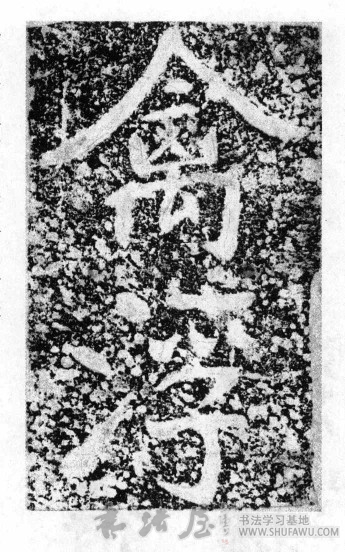 禽
浮
书法屋
书法学习基地
WWW.SHUFAWU.COM